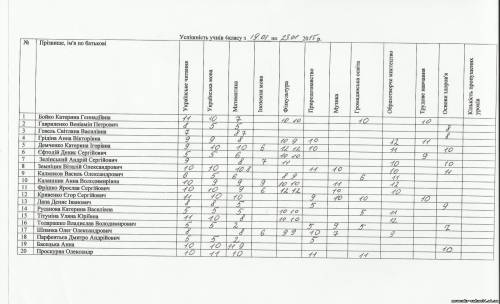 Успішність учнів 6класу з 19.01 по 23.01 2015р.
№ Прізвище, ім'я по батькові Українське читання Українська мова Математика Іноземна мова Фізкультура Природознавство Музика Громадянська освіта Образотворче мистецтво Трудове навчання Основи здоров'я Кількість пропущених уроків
1 Бойко Катерина Геннадіївна 11 10 7 10 10 10 10
2 Гавриленко Веніамін Петрович 8 5 5 8
3 Гожель Світлана Василівна 7 8 7 8
4 Грідіна Анна Вікторівна 9 9 8 10 9 10 12 11
5 Демченко Катерина Ігорівна 9 10 10 6 12 12 10 11 10
6 Єфтодій Денис Сергійович 5 5 6 10 10 9
7 Залізський Андрій Сергійович 9 8 7 11 10 10
8 Олександрович 10 10 10 8 11 10 10 11
9 Олександрович 6 5 6 8 9 6 11
10 Анна Володимирівна 10 9 9 9 10 10 11 12
11 Фрідко Ярослав Сергійович 10 10 9 6 12 12 10
12 Кривенко Єгор Сергійович 11 10 10 9 10 10 10
13 Ланя Денис Іванович 8 8 5 5 9
14 Русанова Катерина Василівна 5 5 5 10 10 6 11
15 Тітуніна Уляна Юріївна 11 10 8 10 10 12
16 Тодаращко Владислав Володимирович 5 5 2 5 9 5 7
17 Шпинка Олег Олександрович 8 8 6 9 9 10 7 9
18 Парфентьєв Дмитро Андрійович 5 5 2 5
19 Васецька Анна 10 10 11 9 10
20 Проскурня Олександр 10 11 10 11 11